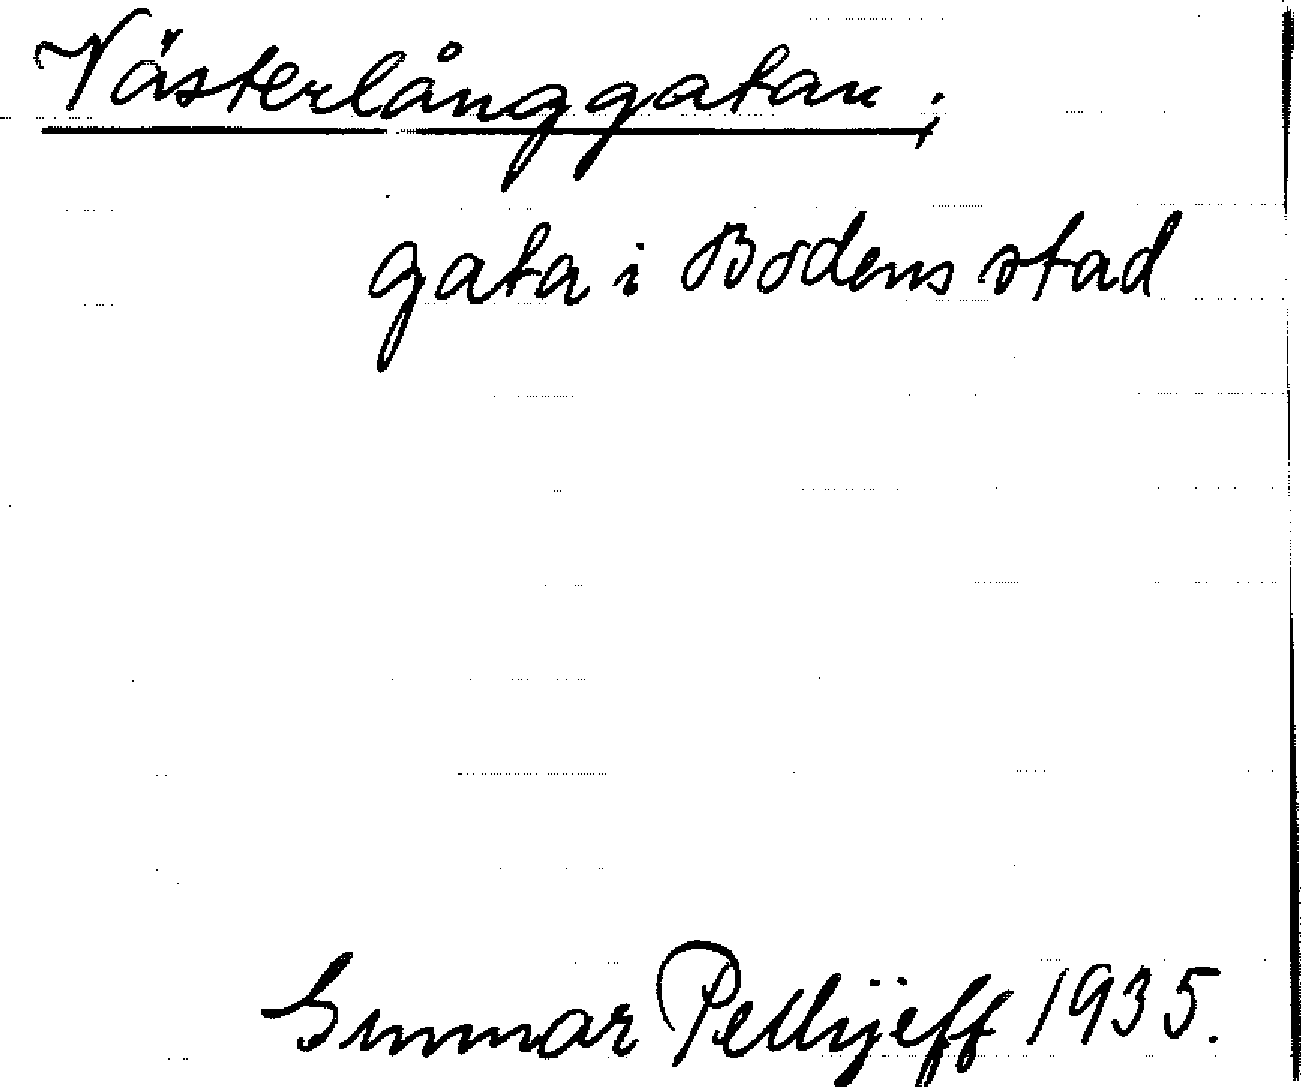 Västerlånggatan;
gata i Bodens stad
Gunnar Pellijeff 1935.